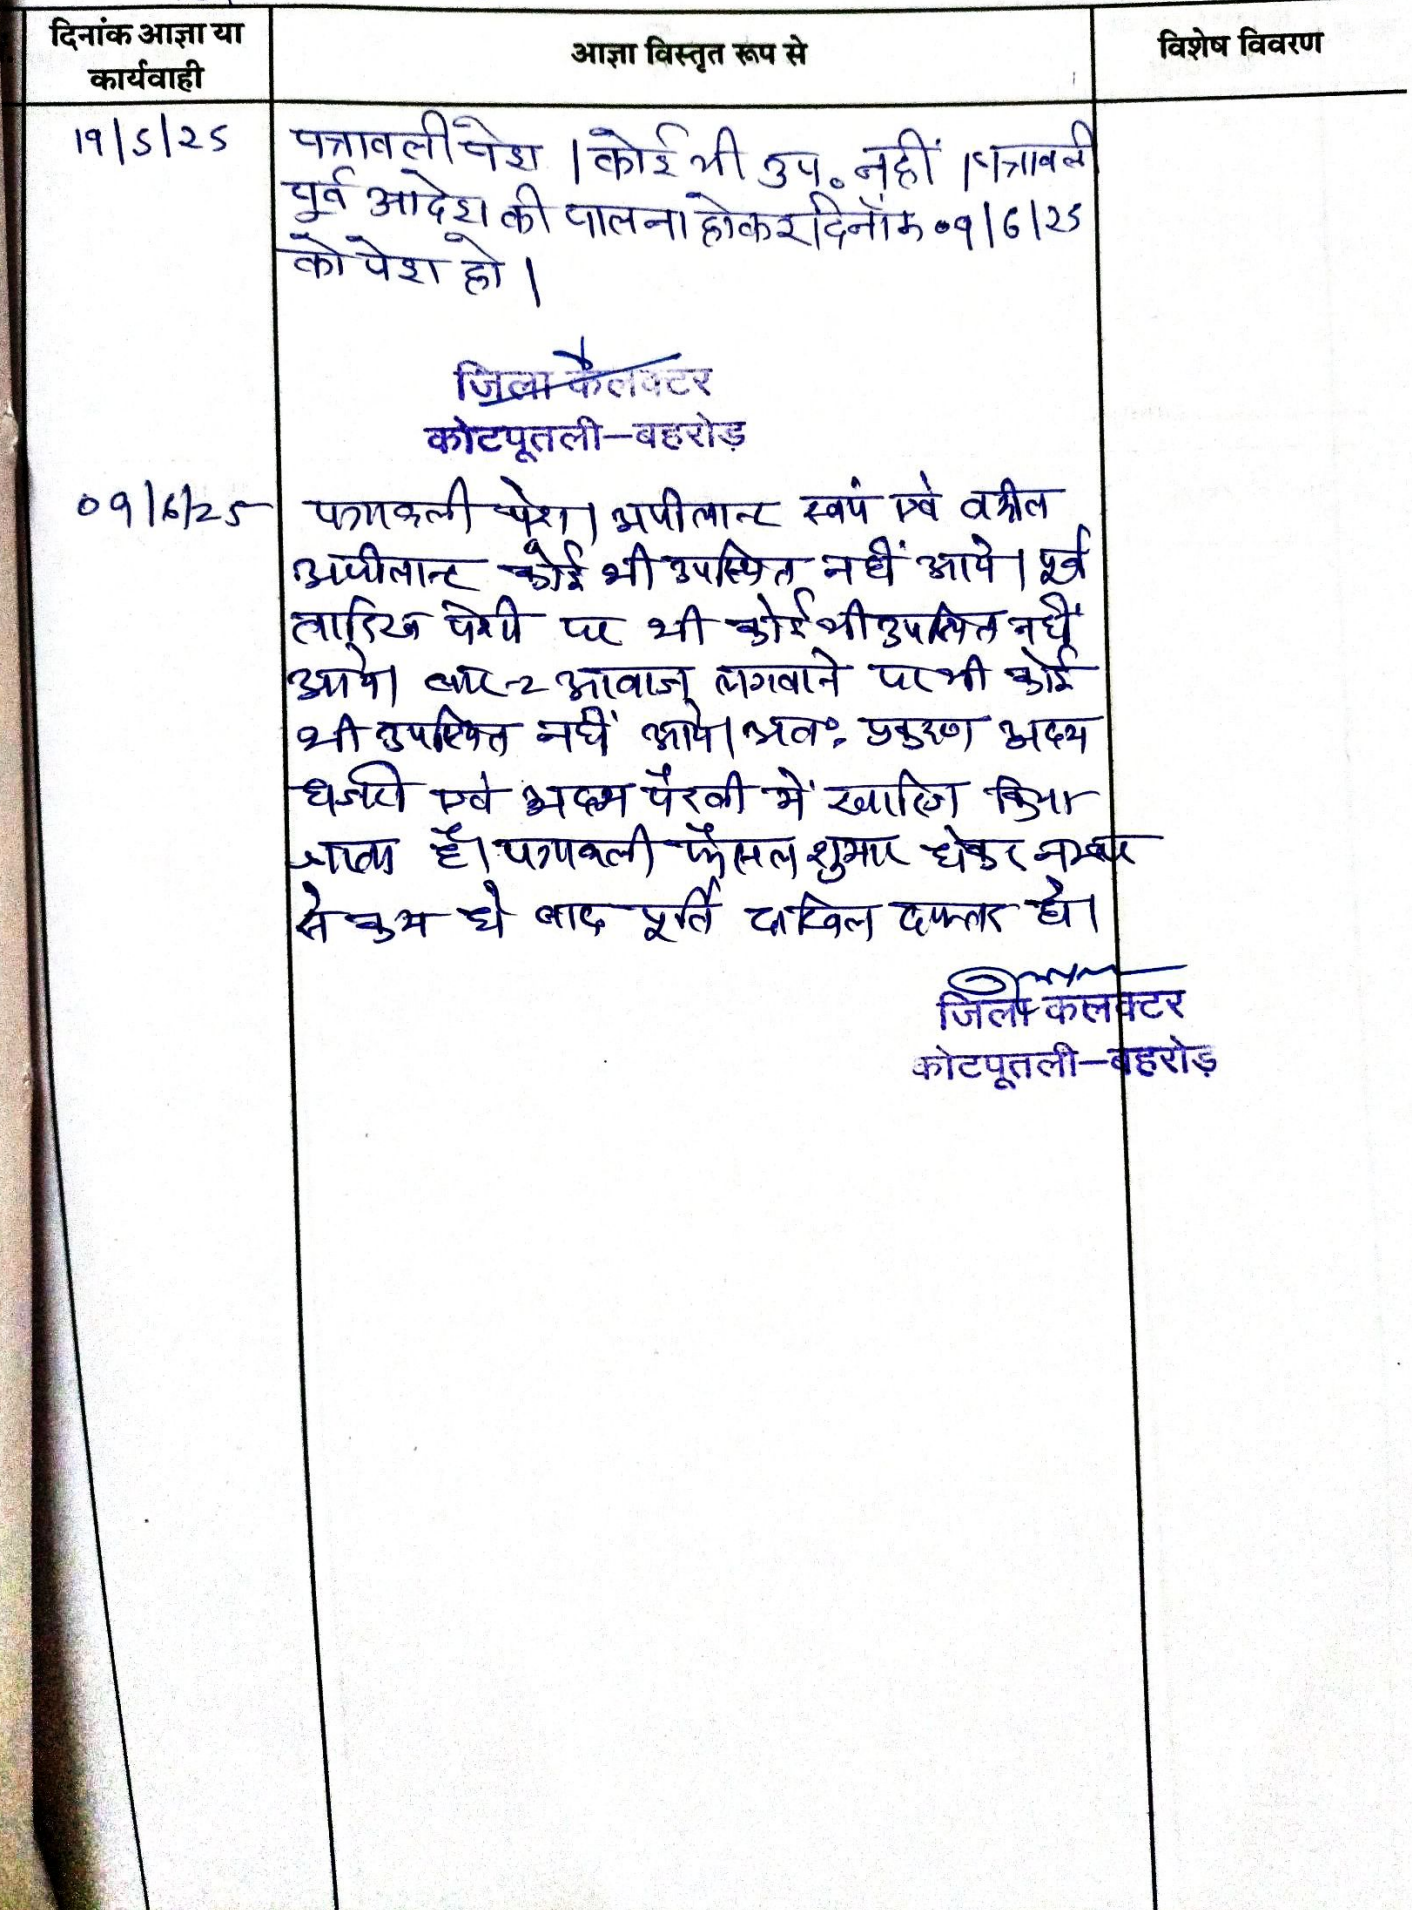 दिनांक आज्ञा या
कार्यवाही
आज्ञा विस्तृत रूप से
विशेष विवरण
19/5/25
पत्रावली पेश । कोई भी उप. नहीं । पत्रावली
पूर्व आदेश की पालना होकर दिनाँक 09/6/25
को पेश हो ।
जिला कैलक्टर
कोटपूतली-बहरोड़
09/6/25
पत्रावली पेश। अपीलान्ट स्वयं एवं वकील
अपीलान्ट कोई भी उपस्थित नहीं आये। पूर्व
तारिख पेशी पर भी कोई भी उपस्थित नहीं
आये। बार-2 आवाज लगवाने पर भी कोई
भी उपस्थित नहीं आये। अतः प्रकरण अदम
हाजरी एवं अदम पैरवी में खारिज किया
जाता है। पत्रावली फैसल शुमार होकर नम्बर
से कम हो बाद पूर्ति दाखिल दफ्तर हो।
जिला कैलक्टर
कोटपूतली-बहरोड़